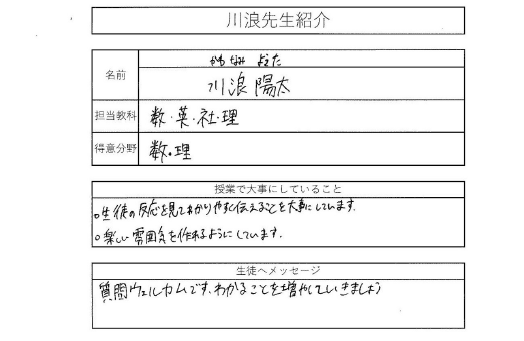 川浪先生紹介
名前
かわなみ ようた
川浪 陽太
担当教科
数・英・社・理
得意分野
数・理
授業で大事にしていること
○生徒の反応を見てわかりやすく伝えることを大事にしています.
○楽しい雰囲気を作れるようにしています.
生徒へメッセージ
質問ウェルカムです.わかることを増やしていきましょう